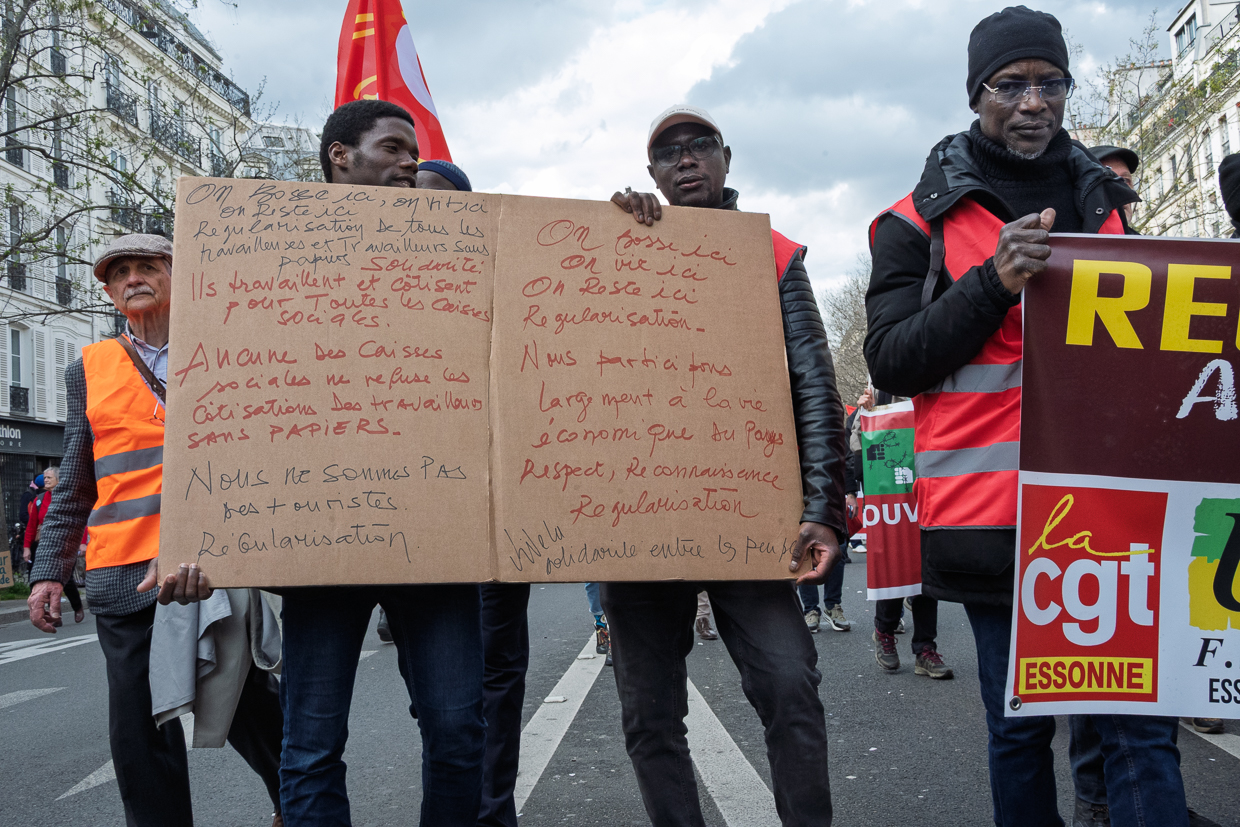 On Bosse ici, on vit ici
on Reste ici
Regularisation de tous les
travailleuses et Travailleurs sans
papiers Solidarité
Ils travaillent et cotisent
pour Toutes les Caisses
sociales.
Aucune Des Caisses
sociales ne refuse les
Cotisations Des travailleurs
SANS PAPIERS.
Nous ne sommes PAS
Des touristes.
Régularisation.
On Bosse ici
On vie ici
On Reste ici
Regularisation.
Nous participons
Largement à la vie
économique du Pays
Respect, Reconnaissance
Regularisation
solidarite entre les peup
RE
A
la
cgt
ESSONNE
F.
ESS
OUV
thlon